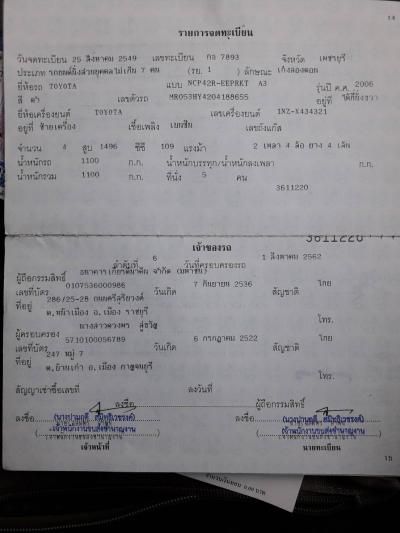 14
รายการจดทะเบียน
วันจดทะเบียน 25 สิงหาคม 2549 เลขทะเบียน กล 7893 จังหวัด เพชรบุรี
ประเภท รถยนต์นั่งส่วนบุคคลไม่เกิน 7 คน (รย. 1 ) ลักษณะ เก๋งสองตอน
ยี่ห้อรถ TOYOTA แบบ NCP42R-EEPRKT A3 รุ่นปี ค.ศ. 2006
สี ดำ เลขตัวรถ MR053HY4204188655 อยู่ที่
ยี่ห้อเครื่องยนต์ TOYOTA เลขเครื่องยนต์ 1NZ-X434321
อยู่ที่ ซ้ายเครื่อง เชื้อเพลิง เบนซิน เลขถังแก๊ส
จำนวน 4 สูบ 1496 ซีซี 109 แรงม้า 2 เพลา 4 ล้อ ยาง 4 เส้น
น้ำหนักรถ 1100 ก.ก. น้ำหนักบรรทุก/น้ำหนักลงเพลา ก.ก.
น้ำหนักรวม 1100 ก.ก. ที่นั่ง 5 คน
3611220
3611220
เจ้าของรถ
ลำดับที่ 6 วันที่ครอบครองรถ 1 สิงหาคม 2562
ผู้ถือกรรมสิทธิ์ ธนาคารเกียรตินาคิน จำกัด (มหาชน)
เลขที่บัตร 0107536000986 วันเกิด 7 กันยายน 2536 สัญชาติ ไทย
ที่อยู่ 286/25-28 ถนนศรีสุริยวงศ์
ต.หน้าเมือง อ.เมือง ราชบุรี โทร.
ผู้ครอบครอง นางสาวดวงพร
เลขที่บัตร 5710100056789 วันเกิด 6 กรกฎาคม 2522 สัญชาติ ไทย
ที่อยู่ 247 หมู่ 7
ต.บ้านเก่า อ.เมือง กาญจนบุรี โทร.
สัญญาเช่าซื้อเลขที่ ลงวันที่
ลงชื่อ ผู้ถือกรรมสิทธิ์
ลงชื่อ ลงชื่อ
เจ้าพนักงานขนส่งชำนาญงาน เจ้าพนักงานขนส่งชำนาญงาน
เจ้าหน้าที่ นายทะเบียน
15